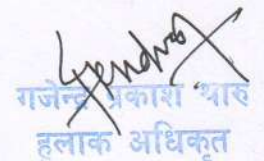 गजेन्द्र प्रकाश थारु
हुलाक अधिकृत